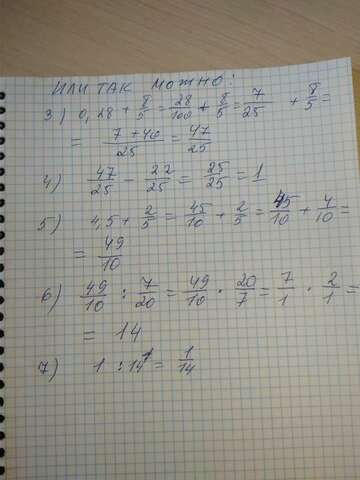 ИЛИ ТАК МОЖНО:
3) 0,28 + 8/5 = 28/100 + 8/5 = 7/25 + 8/5 =
= 7+40/25 = 47/25
4) 47/25 - 22/25 = 25/25 = 1
5) 4,5 + 2/5 = 45/10 + 2/5 = 45/10 + 4/10 =
= 49/10
6) 49/10 : 7/20 = 49/10 · 20/7 = 7/1 · 2/1 =
= 14
7) 1 : 14 = 1/14